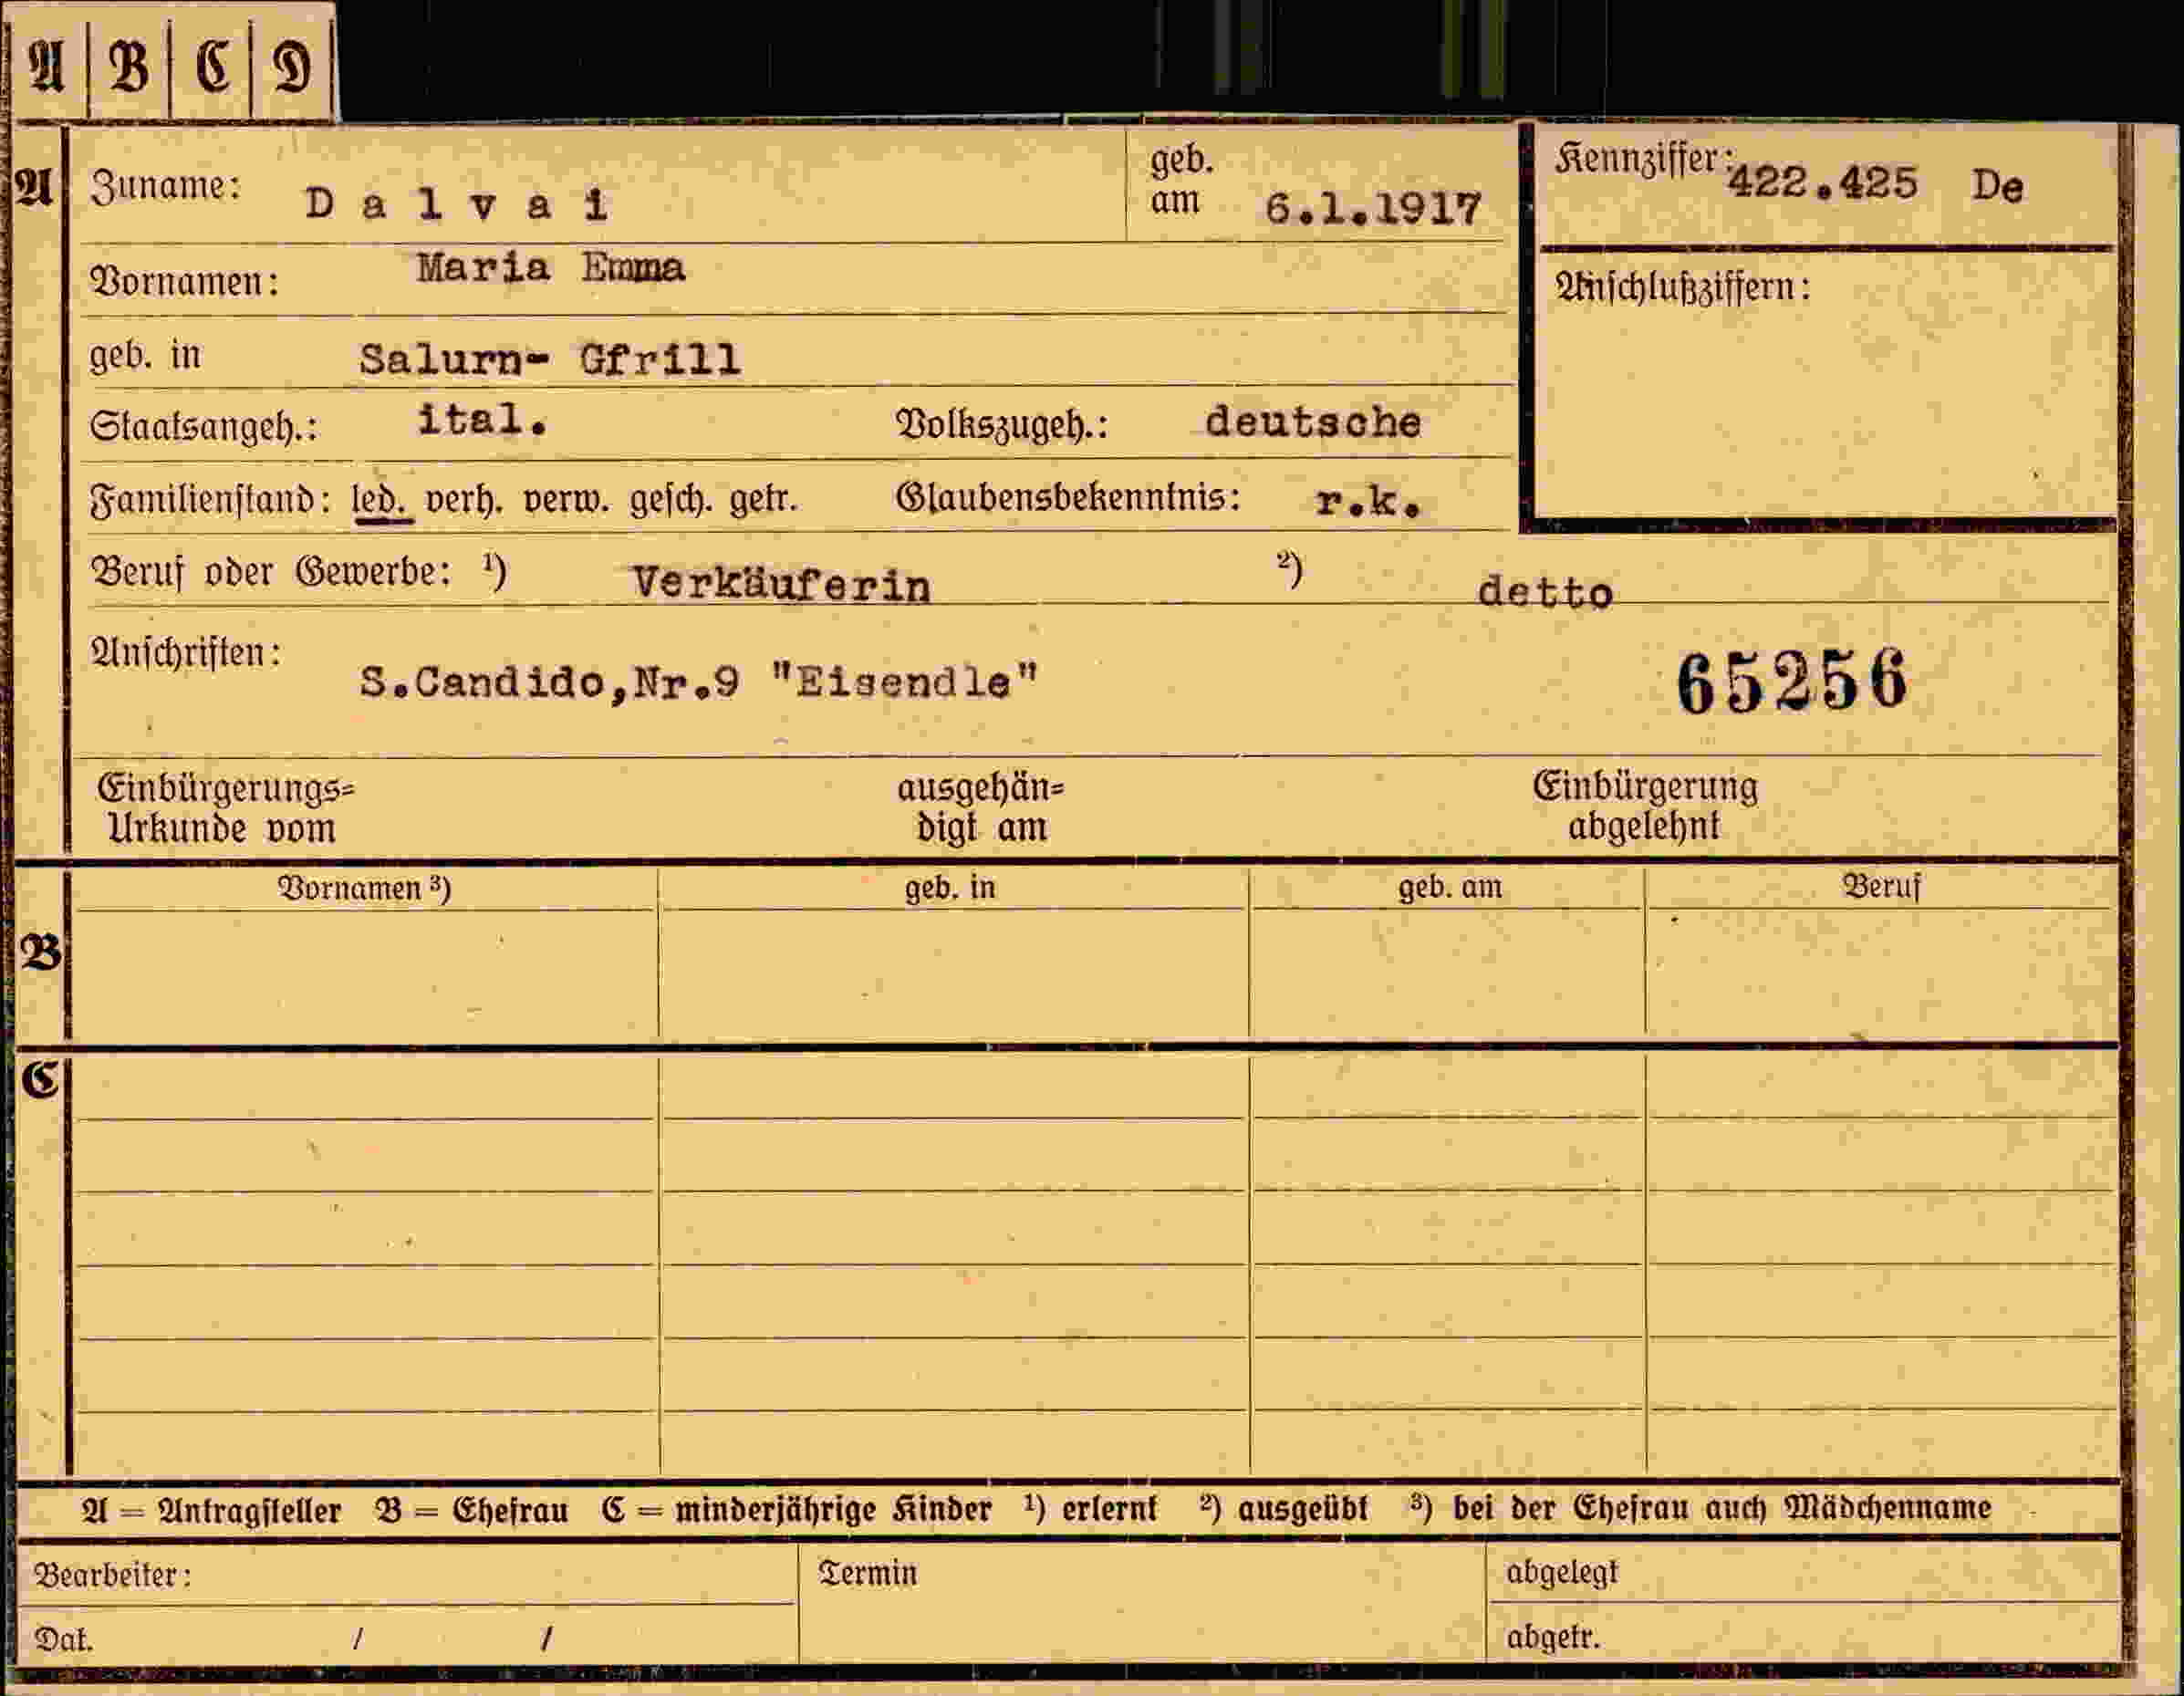 A | B | C | D
A Zuname: Dalvai geb. am 6.1.1917 Kennziffer: 422.425 De
Vornamen: Maria Emma Anschlußziffern:
geb. in Salurn- Gfrill
Staatsangeh.: ital. Volkszugeh.: deutsche
Familienstand: led. verh. verw. gesch. getr. Glaubensbekenntnis: r.k.
Beruf oder Gewerbe: ¹) Verkäuferin ²) detto
Anschriften: S.Candido,Nr.9 "Eisendle" 65256
Einbürgerungs= ausgehän= Einbürgerung
Urkunde vom digt am abgelehnt
Vornamen ³) geb. in geb. am Beruf
B
C
A = Antragsteller B = Ehefrau C = minderjährige Kinder ¹) erlernt ²) ausgeübt ³) bei der Ehefrau auch Mädchenname
Bearbeiter: Termin abgelegt
Dat. / / abgetr.